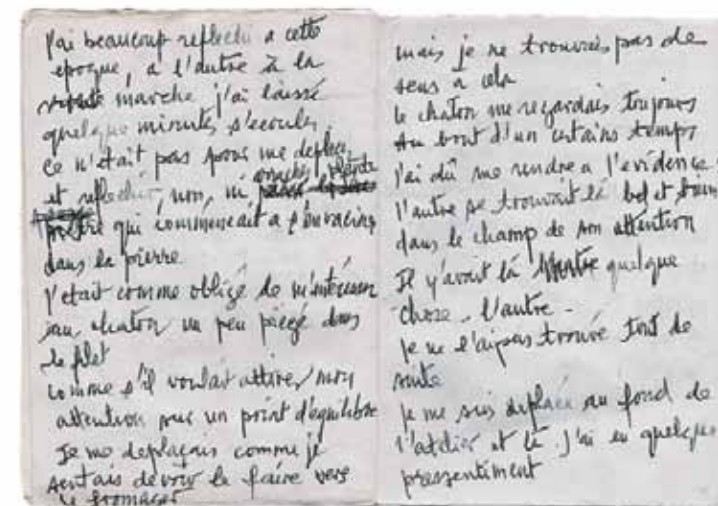 j'ai beaucoup reflechi a cette
epoque, a l'autre à la
marche j'ai laissé
quelque minutes s'ecouler.
ce n'était pas pour me deplacer
et reflechir, non, ni arracher plante
qui commencait a s'enraciner
dans la pierre
j'etait comme obligé de m'interesser
au chaton un peu piegé dans
le filet
comme s'il voulait attirer mon
attention sur un point d'equilibre
Je me deplaçais comme je
sentais devoir le faire vers
le fromager
mais je ne trouvais pas de
sens a cela
le chaton me regardais toujours
Au bout d'un certains temps
j'ai dû me rendre a l'evidence
l'autre se trouvait là bel et bien
dans le champ de son attention
Il y'avait là quelque
chose. l'autre.
je ne l'aipas trouvé tout de
suite
je me suis deplacé au fond de
l'atelier et là j'ai eu quelque
pressentiment